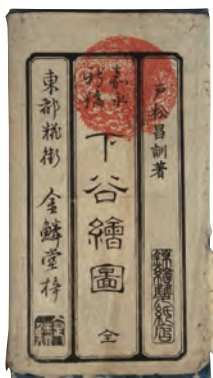 戸松昌訓著
嘉永
新鐫
下谷繪圖
全
東都糀街 金鱗堂梓